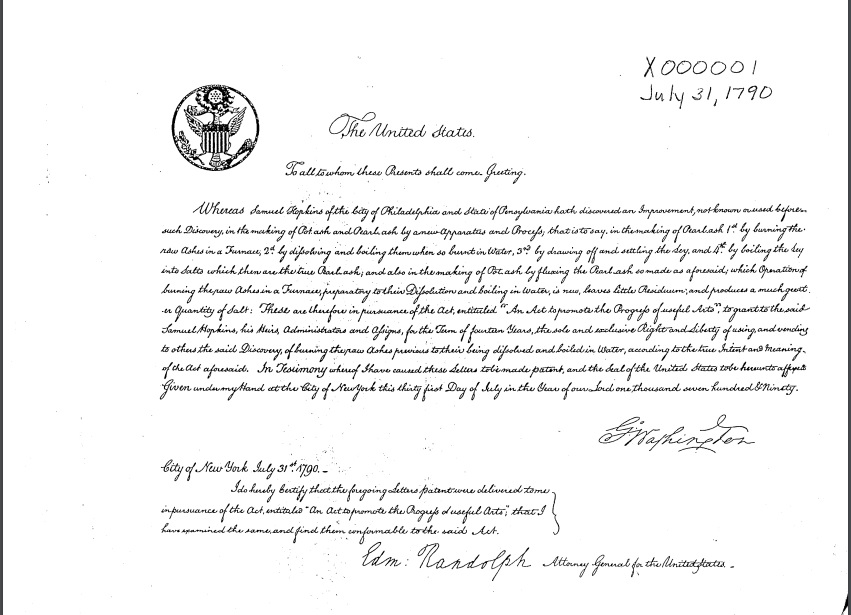 X000001
July 31, 1790
The United States.
To all to whom these Presents shall come. Greeting.
Whereas Samuel Hopkins of the City of Philadelphia and State of Pensylvania hath discovered an Improvement, not known or used before
such Discovery, in the making of Pot ash and Pearl ash by a new Apparatus and Process; that is to say, in the making of Pearl ash 1st by burning the
raw Ashes in a Furnace, 2d by dissolving and boiling them when so burnt in Water, 3d by drawing off and settling the Ley, and 4th by boiling the Ley
into Salts which then are the true Pearl ash; and also in the making of Pot ash by fluxing the Pearl ash so made as aforesaid; which Operation of
burning the raw Ashes in a Furnace, preparatory to their Dissolution and boiling in Water, is new, leaves little Residuum; and produces a much great
er Quantity of Salt: These are therefore in pursuance of the Act, entituled "An Act to promote the Progress of useful Arts", to grant to the said
Samuel Hopkins, his Heirs, Administrators and Assigns, for the Term of fourteen Years, the sole and exclusive Right and Liberty of using, and vending
to others the said Discovery, of burning the raw Ashes previous to their being dissolved and boiled in Water, according to the true Intent and Meaning
of the Act aforesaid. In Testimony whereof I have caused these Letters to be made patent, and the Seal of the United States to be hereunto affixed
Given under my Hand at the City of New York this thirty first Day of July in the Year of our Lord one thousand seven hundred & Ninety.
G. Washington
City of New York July 31st 1790. -
I do hereby Certify that the foregoing Letters patent were delivered to me
in pursuance of the Act, entituled "An Act to promote the Progress of useful Arts"; that I
have examined the same, and find them conformable to the said Act.
Edm: Randolph Attorney General for the United States. -